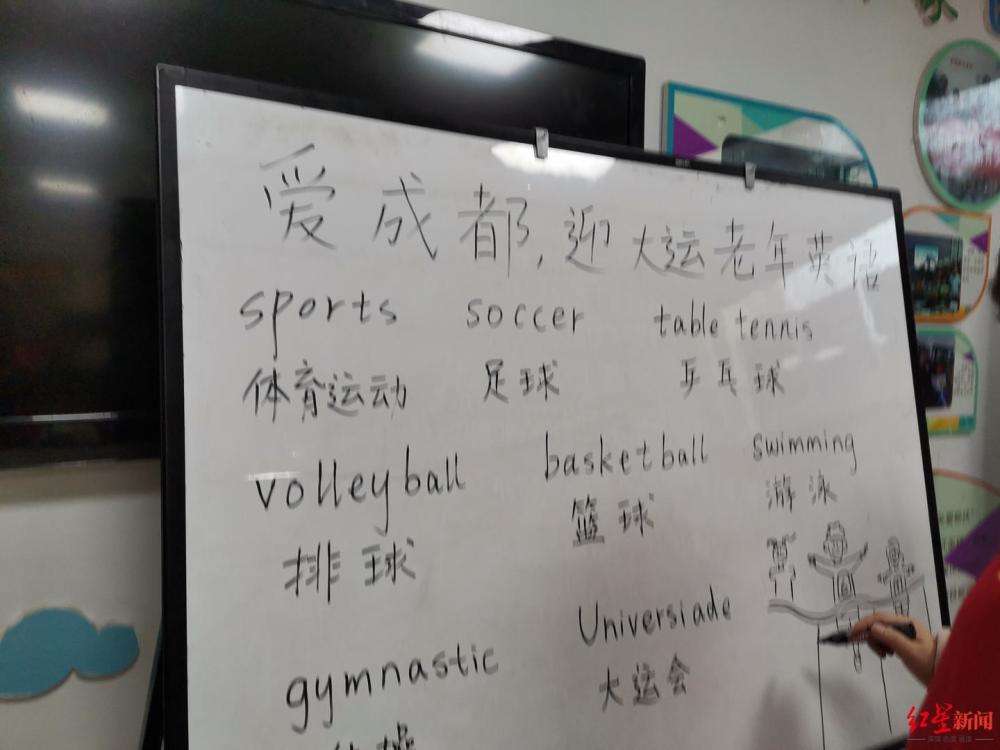 爱成都,迎大运老年英语
sports soccer table tennis
体育运动 足球 乒乓球
volleyball basketball swimming
排球 篮球 游泳
gymnastic Universiade
大运会
红星新闻